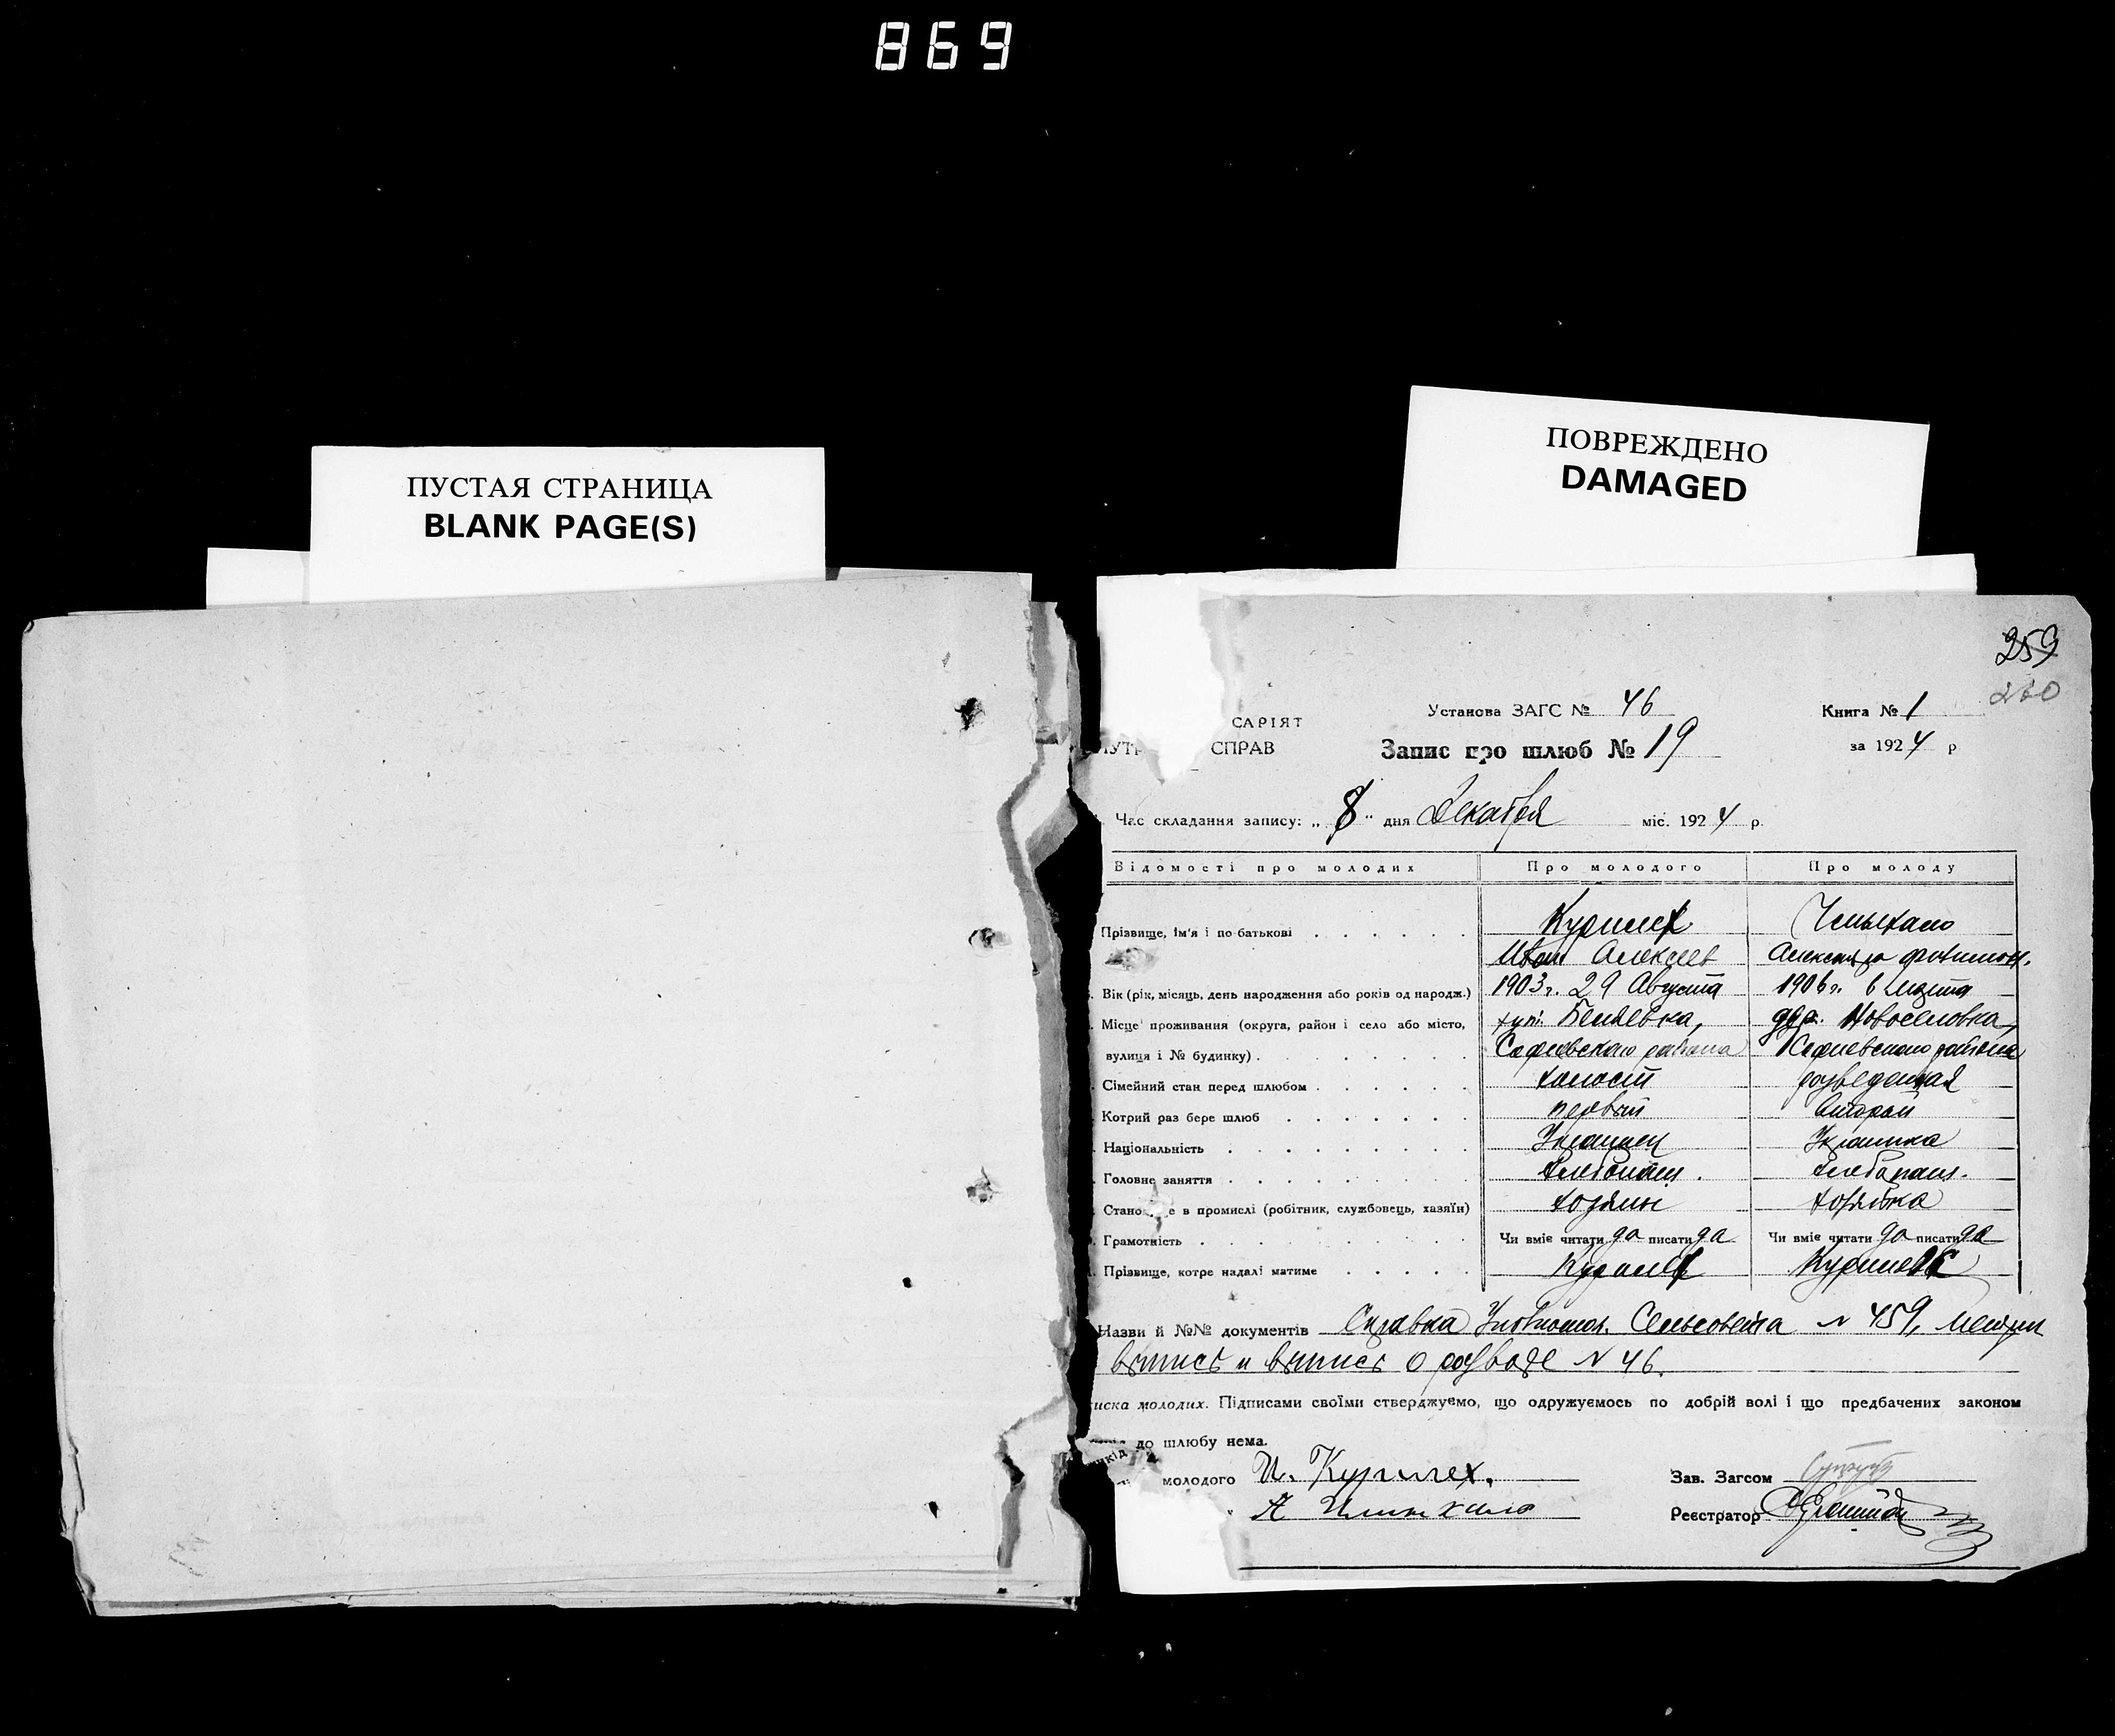 869
ПУСТАЯ СТРАНИЦА
BLANK PAGE(S)
ПОВРЕЖДЕНО
DAMAGED
259
260
САРІЯТ
СПРАВ
Установа ЗАГС № 46
Книга № 1
Запис про шлюб № 19
за 1924 р
Час складання запису: „ 8 " дня Декабря міс. 1924 р.
Відомості про молодих Про молодого Про молоду
Прізвище, ім'я і по батькові
Иван Алексеев
Вік (рік, місяць, день народження або років од народж.) 1903 г. 29 Августа 1906 г. 6
Місце проживання (округа, район і село або місто, хут. Беляевка, дер. Новоселовка,
вулиця і № будинку) Софиевского района Софиевского района
Сімейний стан перед шлюбом холост разведенная
Котрий раз бере шлюб первый второй
Національність Украинец Украинка
Головне заняття хлебопаш. хлебопаш.
Становище в промислі (робітник, службовець, хазяїн) хозяин хозяйка
Грамотність Чи вміє читати да писати да Чи вміє читати да писати да
Прізвище, котре надалі матиме
Назви й №№ документів Справка Сельсовета № 459,
выпись и выпись о разводе № 46.
иска молодих. Підписами своїми стверджуємо, що одружуємось по добрій волі і що предбачених законом
до шлюбу нема.
молодого И. Курилех.
Зав. Загсом
А
Реєстратор